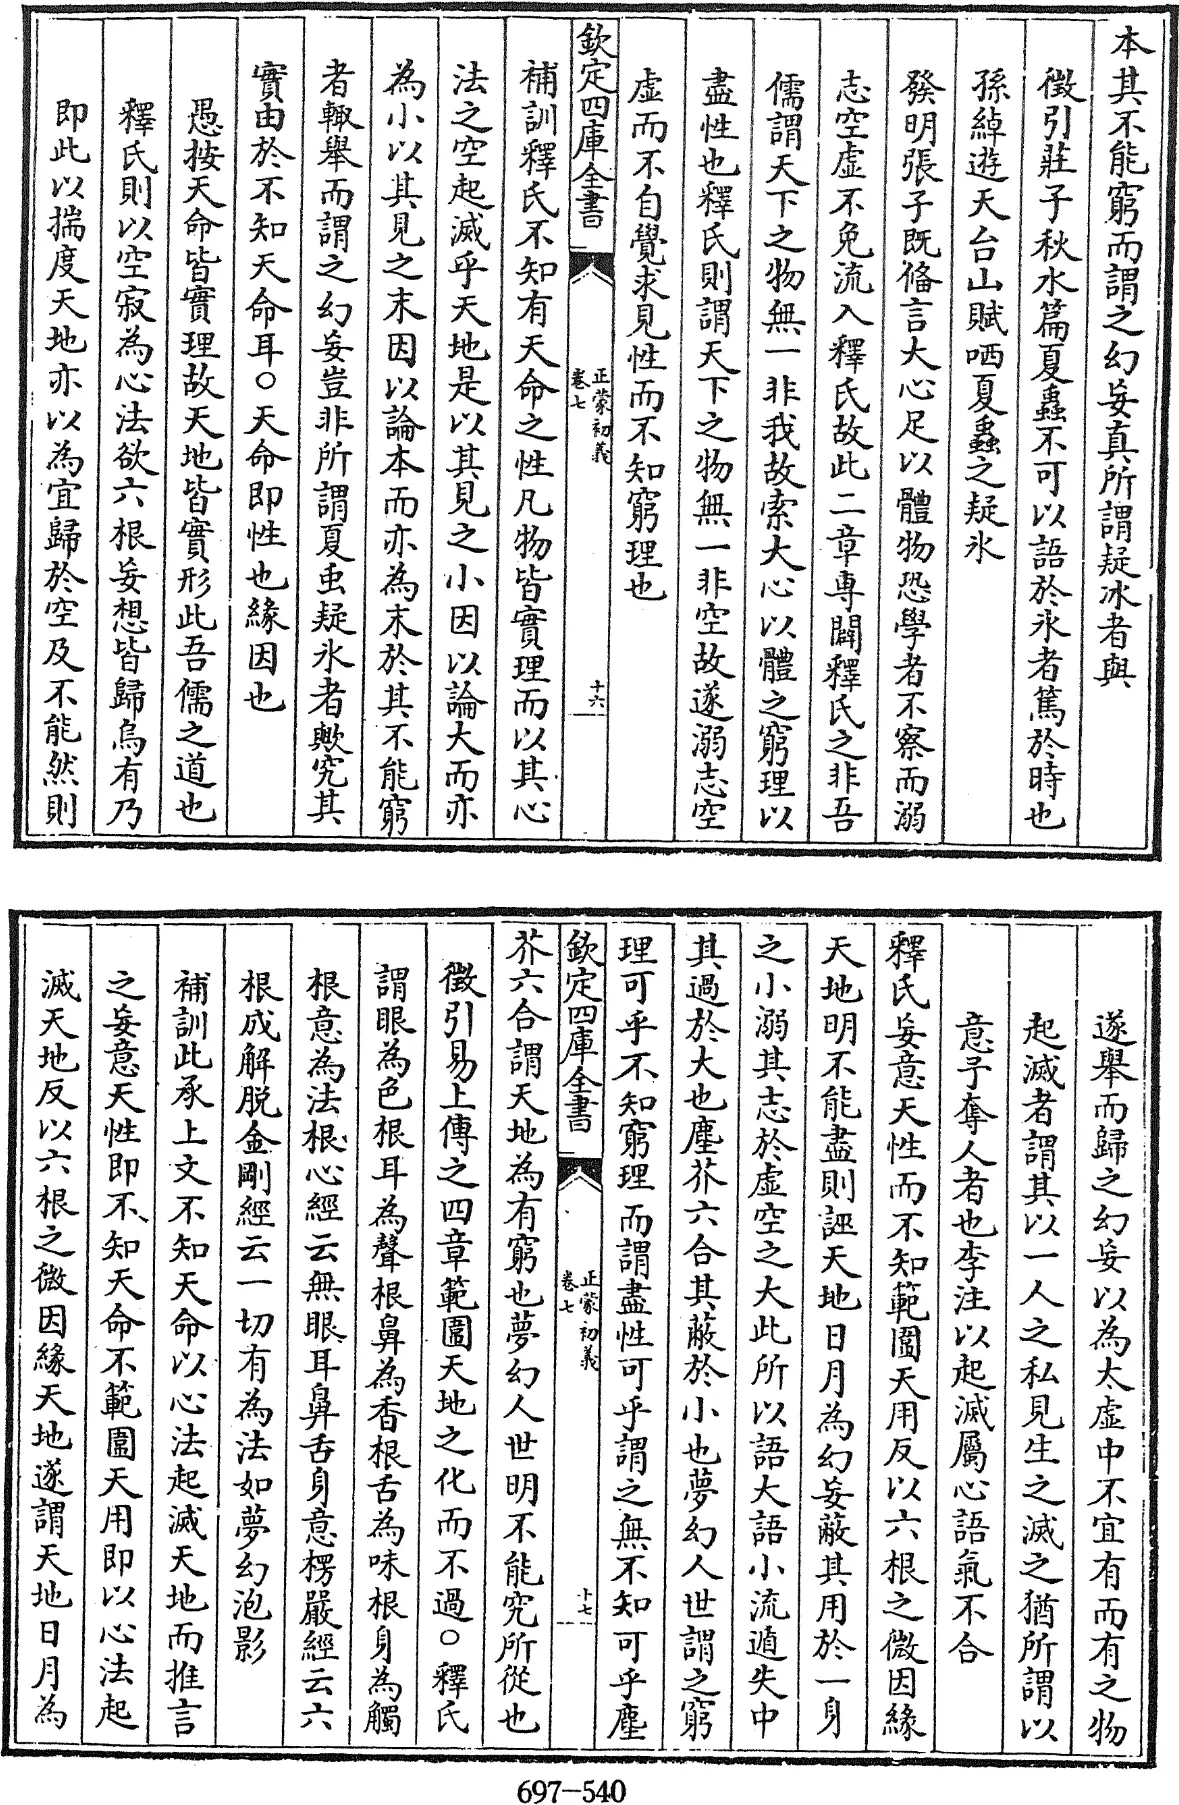 本其不能窮而謂之幻妄真所謂疑冰者與
徵引莊子秋水篇夏蟲不可以語於氷者篤於時也
孫綽遊天台山賦哂夏蟲之疑氷
發明張子既備言大心足以體物恐學者不察而溺
志空虛不免流入釋氏故此二章專闢釋氏之非吾
儒謂天下之物無一非我故索大心以體之窮理以
盡性也釋氏則謂天下之物無一非空故遂溺志空
虛而不自覺求見性而不知窮理也
欽定四庫全書
正蒙初義
卷七
十六
補訓釋氏不知有天命之性凡物皆實理而以其心
法之空起滅乎天地是以其見之小因以論大而亦
為小以其見之末因以論本而亦為末於其不能窮
者輙舉而謂之幻妄豈非所謂夏虫疑氷者歟究其
實由於不知天命耳○天命即性也緣因也
愚按天命皆實理故天地皆實形此吾儒之道也
釋氏則以空寂為心法欲六根妄想皆歸烏有乃
即此以揣度天地亦以為宜歸於空及不能然則
遂舉而歸之幻妄以為太虛中不宜有而有之物
起滅者謂其以一人之私見生之滅之猶所謂以
意予奪人者也李注以起滅屬心語氣不合
釋氏妄意天性而不知範圍天用反以六根之微因緣
天地明不能盡則誣天地日月為幻妄蔽其用於一身
之小溺其志於虛空之大此所以語大語小流遁失中
其過於大也塵芥六合其蔽於小也夢幻人世謂之窮
理可乎不知窮理而謂盡性可乎謂之無不知可乎塵
欽定四庫全書
正蒙初義
卷七
十七
芥六合謂天地為有窮也夢幻人世明不能究所從也
徵引易上傳之四章範圍天地之化而不過○釋氏
謂眼為色根耳為聲根鼻為香根舌為味根身為觸
根意為法根心經云無眼耳鼻舌身意楞嚴經云六
根成解脱金剛經云一切有為法如夢幻泡影
補訓此承上文不知天命以心法起滅天地而推言
之妄意天性即不知天命不範圍天用即以心法起
滅天地反以六根之微因緣天地遂謂天地日月為
697-540